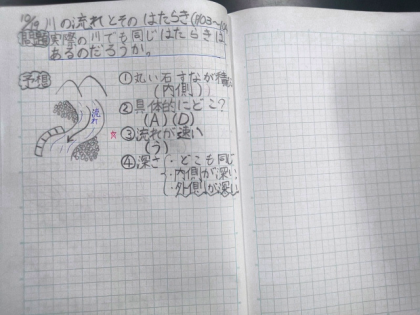 10/9 川の流れとそのはたらき
問題 実際の川でも同じはたらきは
あるのだろうか。
予想
①丸い石 すなが積
(内側)
②具体的にどこ?
(A)(D)
③流れが速い
(う)
④深さ ・どこも同じ
・内側が深い
・外側が深い